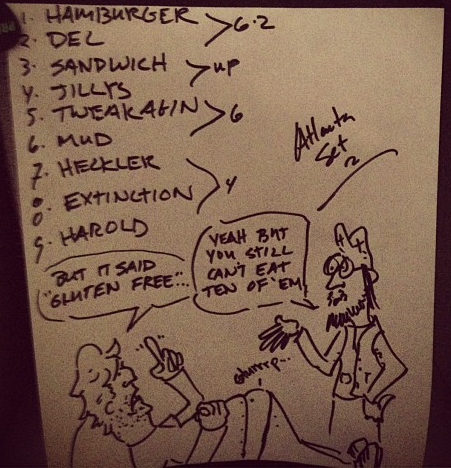 1. HAMBURGER
2. DEL
> 6.2
3. SANDWICH
4. JILLYS
> UP
5. TWEAKAGIN
6. MUD
> 6
7. HECKLER
8. EXTINCTION
> 4
9. HAROLD
Atlanta
Set 2
BUT IT SAID
"GLUTEN FREE"...
YEAH BUT
YOU STILL
CAN'T EAT
TEN OF 'EM!